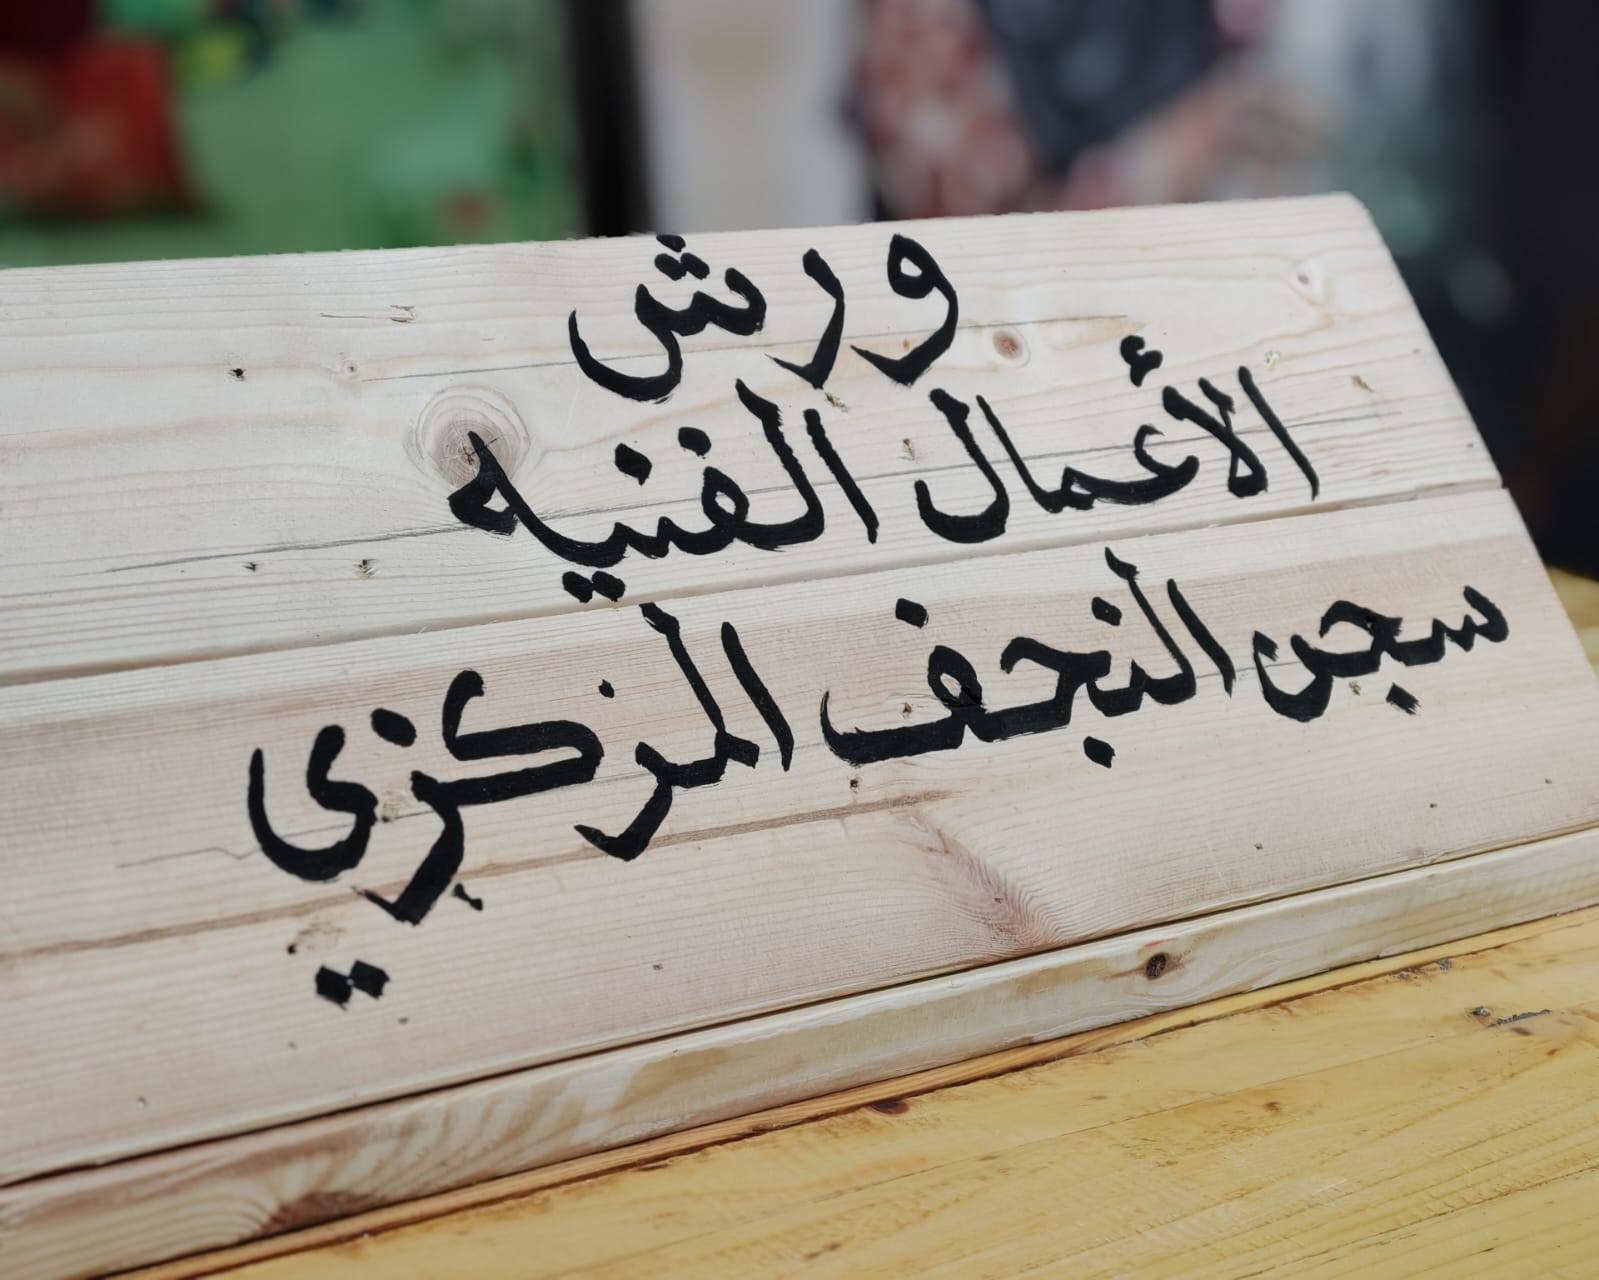 ورش
الأعمال الفنيه
سجن النجف المركزي